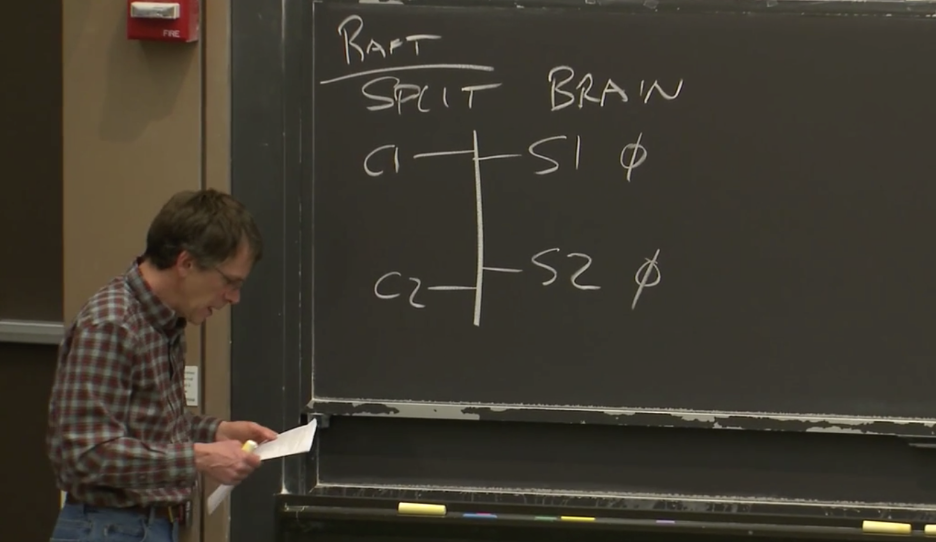 FIRE
RAFT
SPLIT BRAIN
C1 S1 ϕ
C2 S2 ϕ